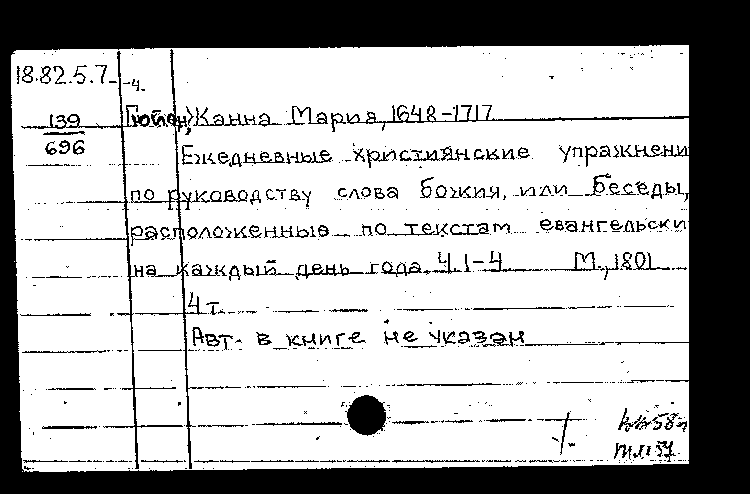 18.82.5.7-4.
139 Гюйен, Жанна Мария, 1648-1717
696
Ежедневные християнские упражнени
по руководству слова божия, или Беседы,
расположенные по текстам евангельски
на каждый день года. Ч.1-4 М., 1801
4 т.
Авт. в книге не указан